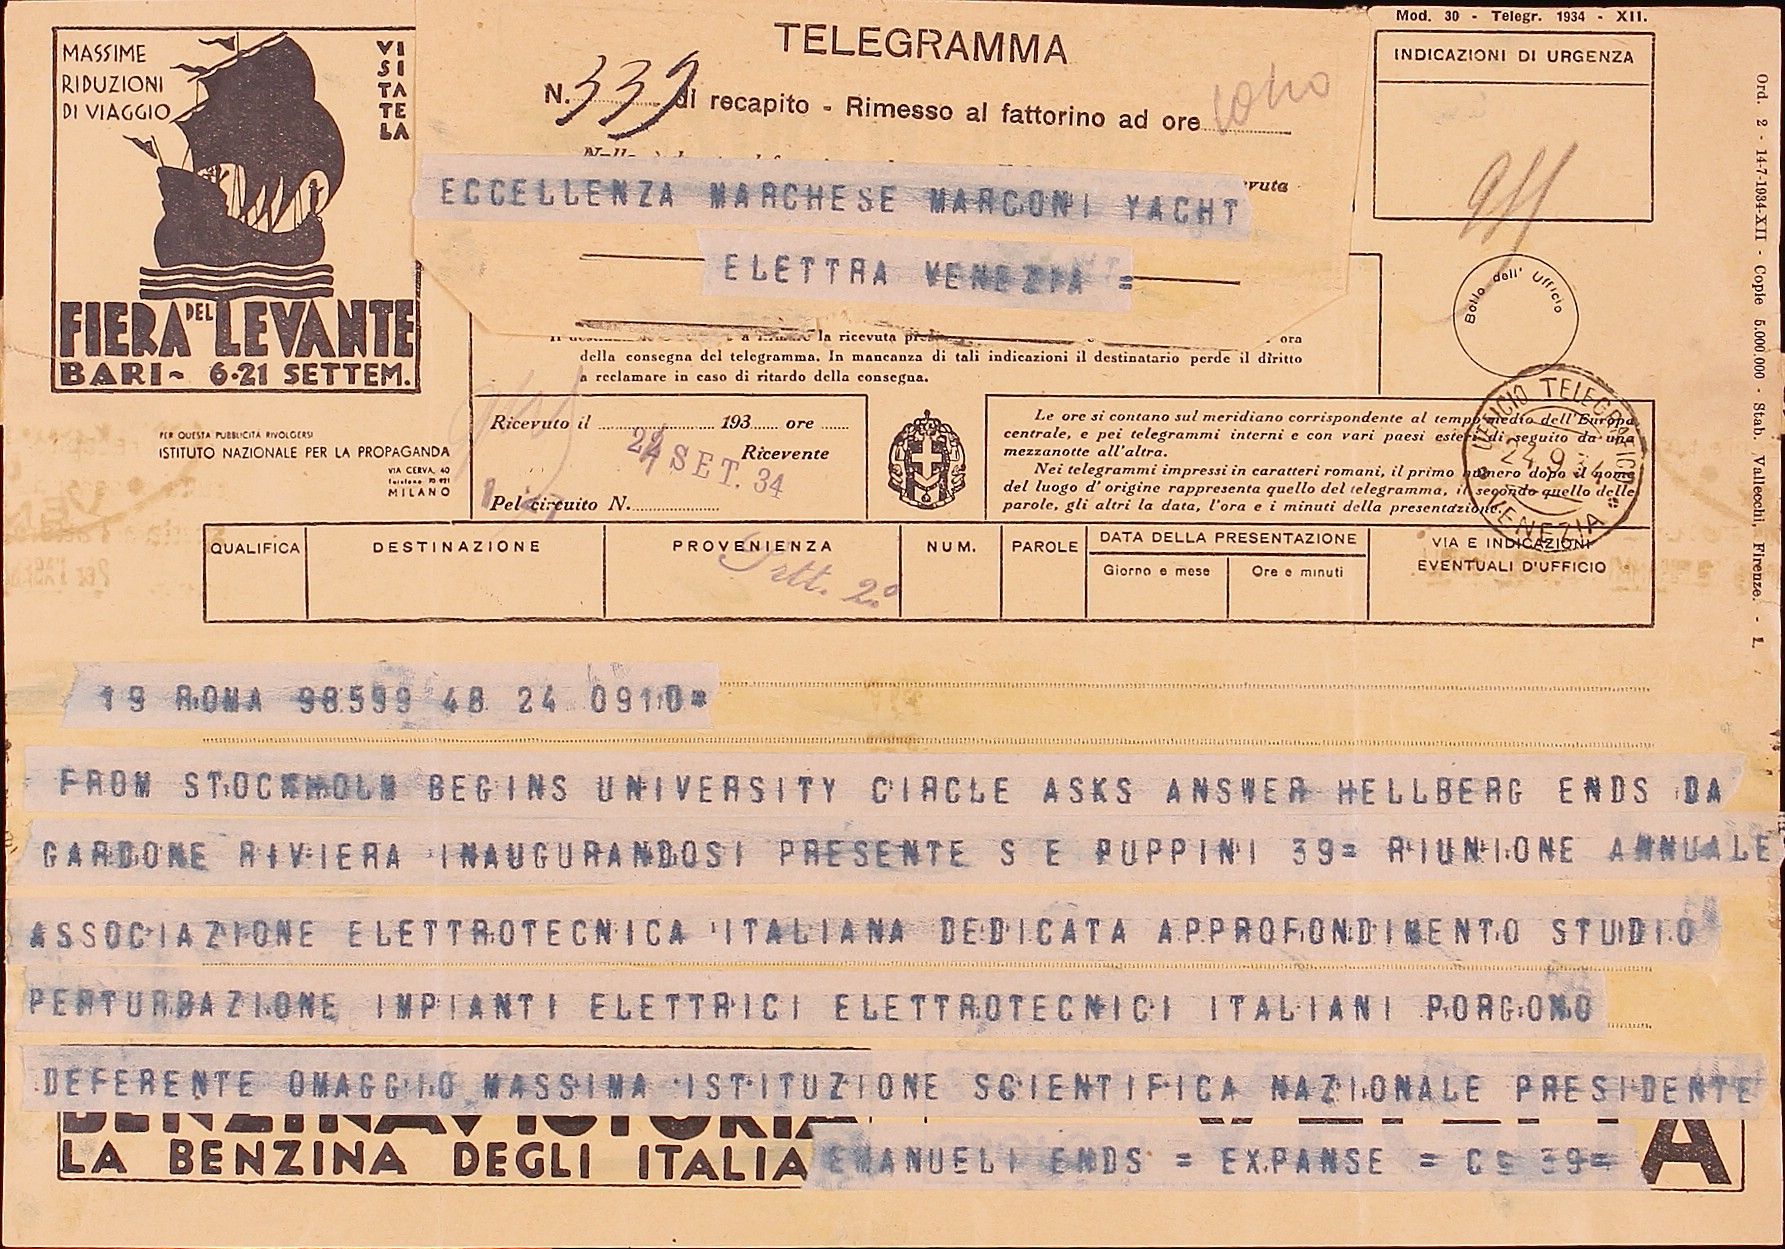 Mod. 30 - Telegr. 1934 - XII.
MASSIME
RIDUZIONI
DI VIAGGIO
VISITATELA
FIERA DEL LEVANTE
BARI ~ 6-21 SETTEM.
TELEGRAMMA
N. 339 di recapito - Rimesso al fattorino ad ore
INDICAZIONI DI URGENZA
ECCELLENZA MARCHESE MARCONI YACHT
ELETTRA VENEZIA =
Bollo dell' Ufficio
la ricevuta ora
della consegna del telegramma. In mancanza di tali indicazioni il destinatario perde il diritto
a reclamare in caso di ritardo della consegna.
PER QUESTA PUBBLICITÀ RIVOLGERSI
ISTITUTO NAZIONALE PER LA PROPAGANDA
VIA CERVA, 40
MILANO
Ricevuto il 193 ore
24 SET. 34
Ricevente
Pel circuito N.
Le ore si contano sul meridiano corrispondente al tempo medio dell'Europa
centrale, e pei telegrammi interni e con vari paesi esteri di seguito da una
mezzanotte all'altra.
Nei telegrammi impressi in caratteri romani, il primo numero dopo il nome
del luogo d'origine rappresenta quello del telegramma, il secondo quello delle
parole, gli altri la data, l'ora e i minuti della presentazione.
UFFICIO TELEGRAFICO
24.9.34
VENEZIA
Ord. 2 - 14-7-1934-XII - Copie 5.000.000 - Stab. Vallecchi, Firenze. - 1.
QUALIFICA
DESTINAZIONE
PROVENIENZA
NUM.
PAROLE
DATA DELLA PRESENTAZIONE
Giorno e mese
Ore e minuti
VIA E INDICAZIONI
EVENTUALI D'UFFICIO
19 ROMA 98599 48 24 0910=
FROM STOCKHOLM BEGINS UNIVERSITY CIRCLE ASKS ANSWER HELLBERG ENDS DA
GARDONE RIVIERA INAUGURANDOSI PRESENTE S E PUPPINI 39= RIUNIONE ANNUALE
ASSOCIAZIONE ELETTROTECNICA ITALIANA DEDICATA APPROFONDIMENTO STUDIO
PERTURBAZIONE IMPIANTI ELETTRICI ELETTROTECNICI ITALIANI PORGONO
DEFERENTE OMAGGIO MASSIMA ISTITUZIONE SCIENTIFICA NAZIONALE PRESIDENTE
BENZINA VICTORIA
LA BENZINA DEGLI ITALIA
EMANUELI ENDS = EXPANSE = CS 39=